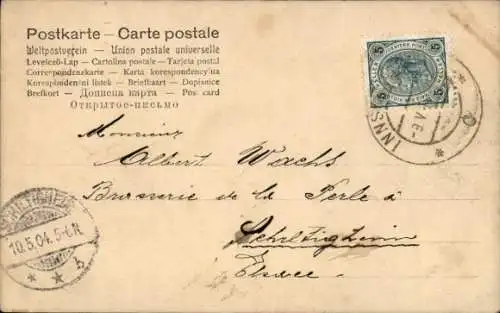 Postkarte — Carte postale
Weltpostverein — Union postale universelle
Levelező-Lap — Cartolina postale — Tarjeta postal
Correspondenzkarte — Karta korespondencyjna
Korespondenční listek — Briefkaart — Dopisnice
Brefkort — Дописна карта — Post card
Открытое-письмо
5 5
INNS
Monsieur
Albert Wachs
Brasserie de la Perle à
Schiltigheim
Elsace
10.5.04. 5-6.N.
* * b